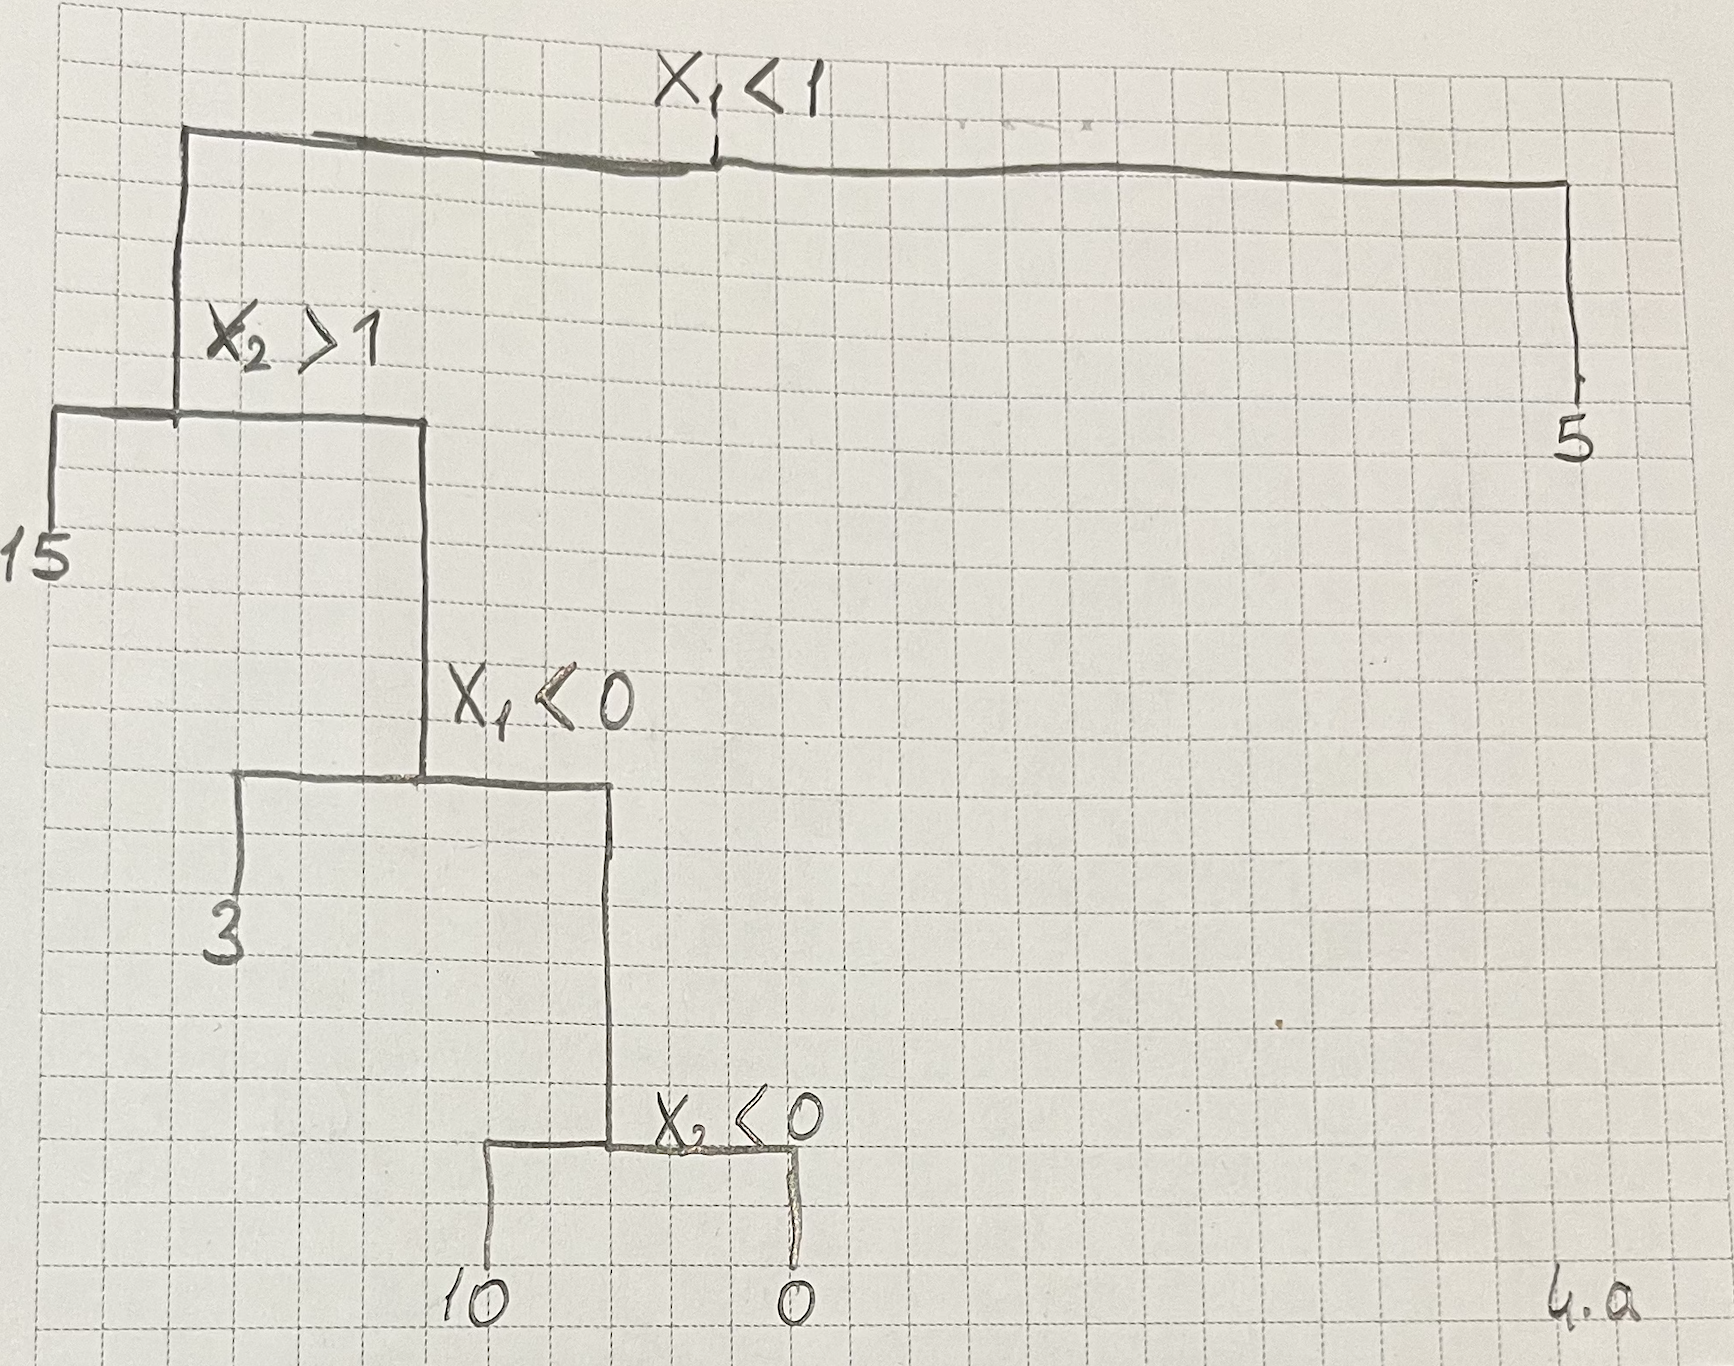 X₁ < 1
X₂ > 1
5
15
X₁ < 0
3
X₂ < 0
10
0
4.a